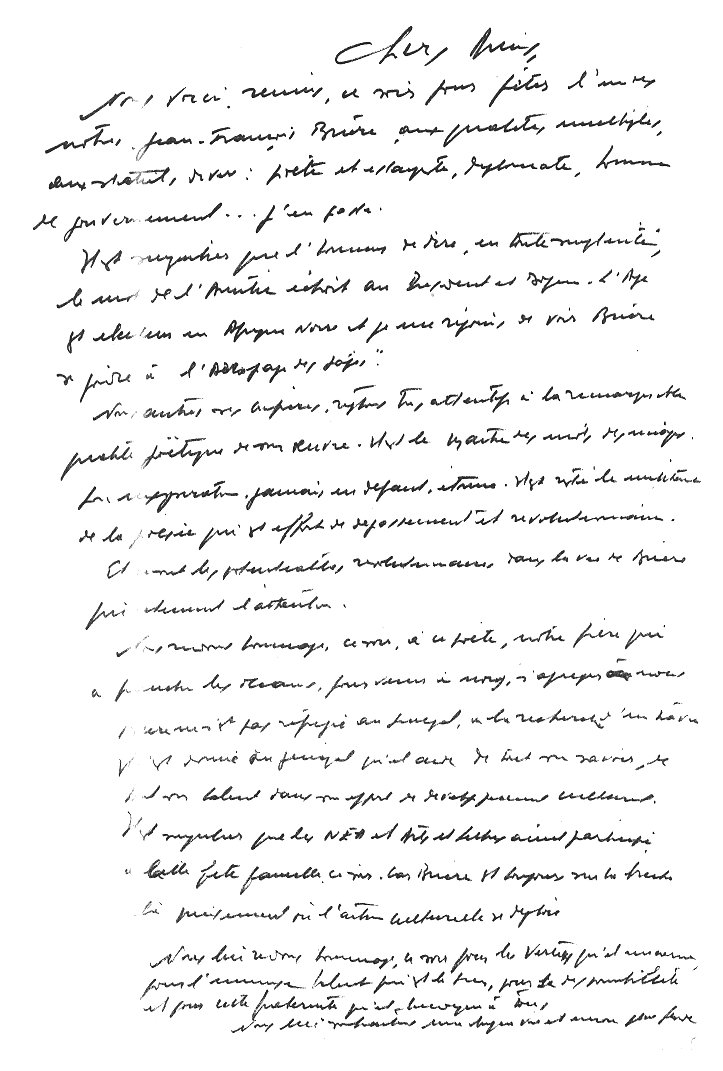 Chers Amis,
Nous voici réunis, ce soir pour fêter l'un des
nôtres, Jean-François Brière aux qualités multiples,
aux statuts divers : poète et essayiste, diplomate, homme
de gouvernement... j'en passe.
Il est que l'honneur de dire, en toute
le mot de l'Amitié échoit au Président et Doyen. L'Age
est en Afrique Noire et je me réjouis de voir Brière
se joindre à l'Aréopage des Sages".
Nous autres ses cadets, restons très attentifs à la remarquable
qualité poétique de son Œuvre. Il est le Maître des mots, des images.
Son inspiration, jamais en défaut, étonne. Il est resté le militant
de la poésie qui est effort de dépassement et révolutionnaire.
Et ce sont les potentialités révolutionnaires dans la vie de Brière
qui retiennent l'attention.
Nous rendons hommage, ce soir, à ce poète, notre frère qui
a franchi les océans, pour venir à nous,
au Sénégal, à la recherche d'un havre
Il s'est donné au Sénégal qu'il aide de tout son savoir, de
tout son talent dans son effort de développement culturel.
Il est que les NEA et Arts et Lettres aient participé
à cette fête familiale, ce soir. Car Brière est toujours sur la brèche
là précisément où l'action culturelle se déploie
Nous lui rendons hommage, ce soir pour les Vertus qu'il incarne,
pour l'immense talent qui est le sien, pour sa disponibilité
et pour cette fraternité qu'il à Tous
Nous lui souhaitons une longue vie et encore plus